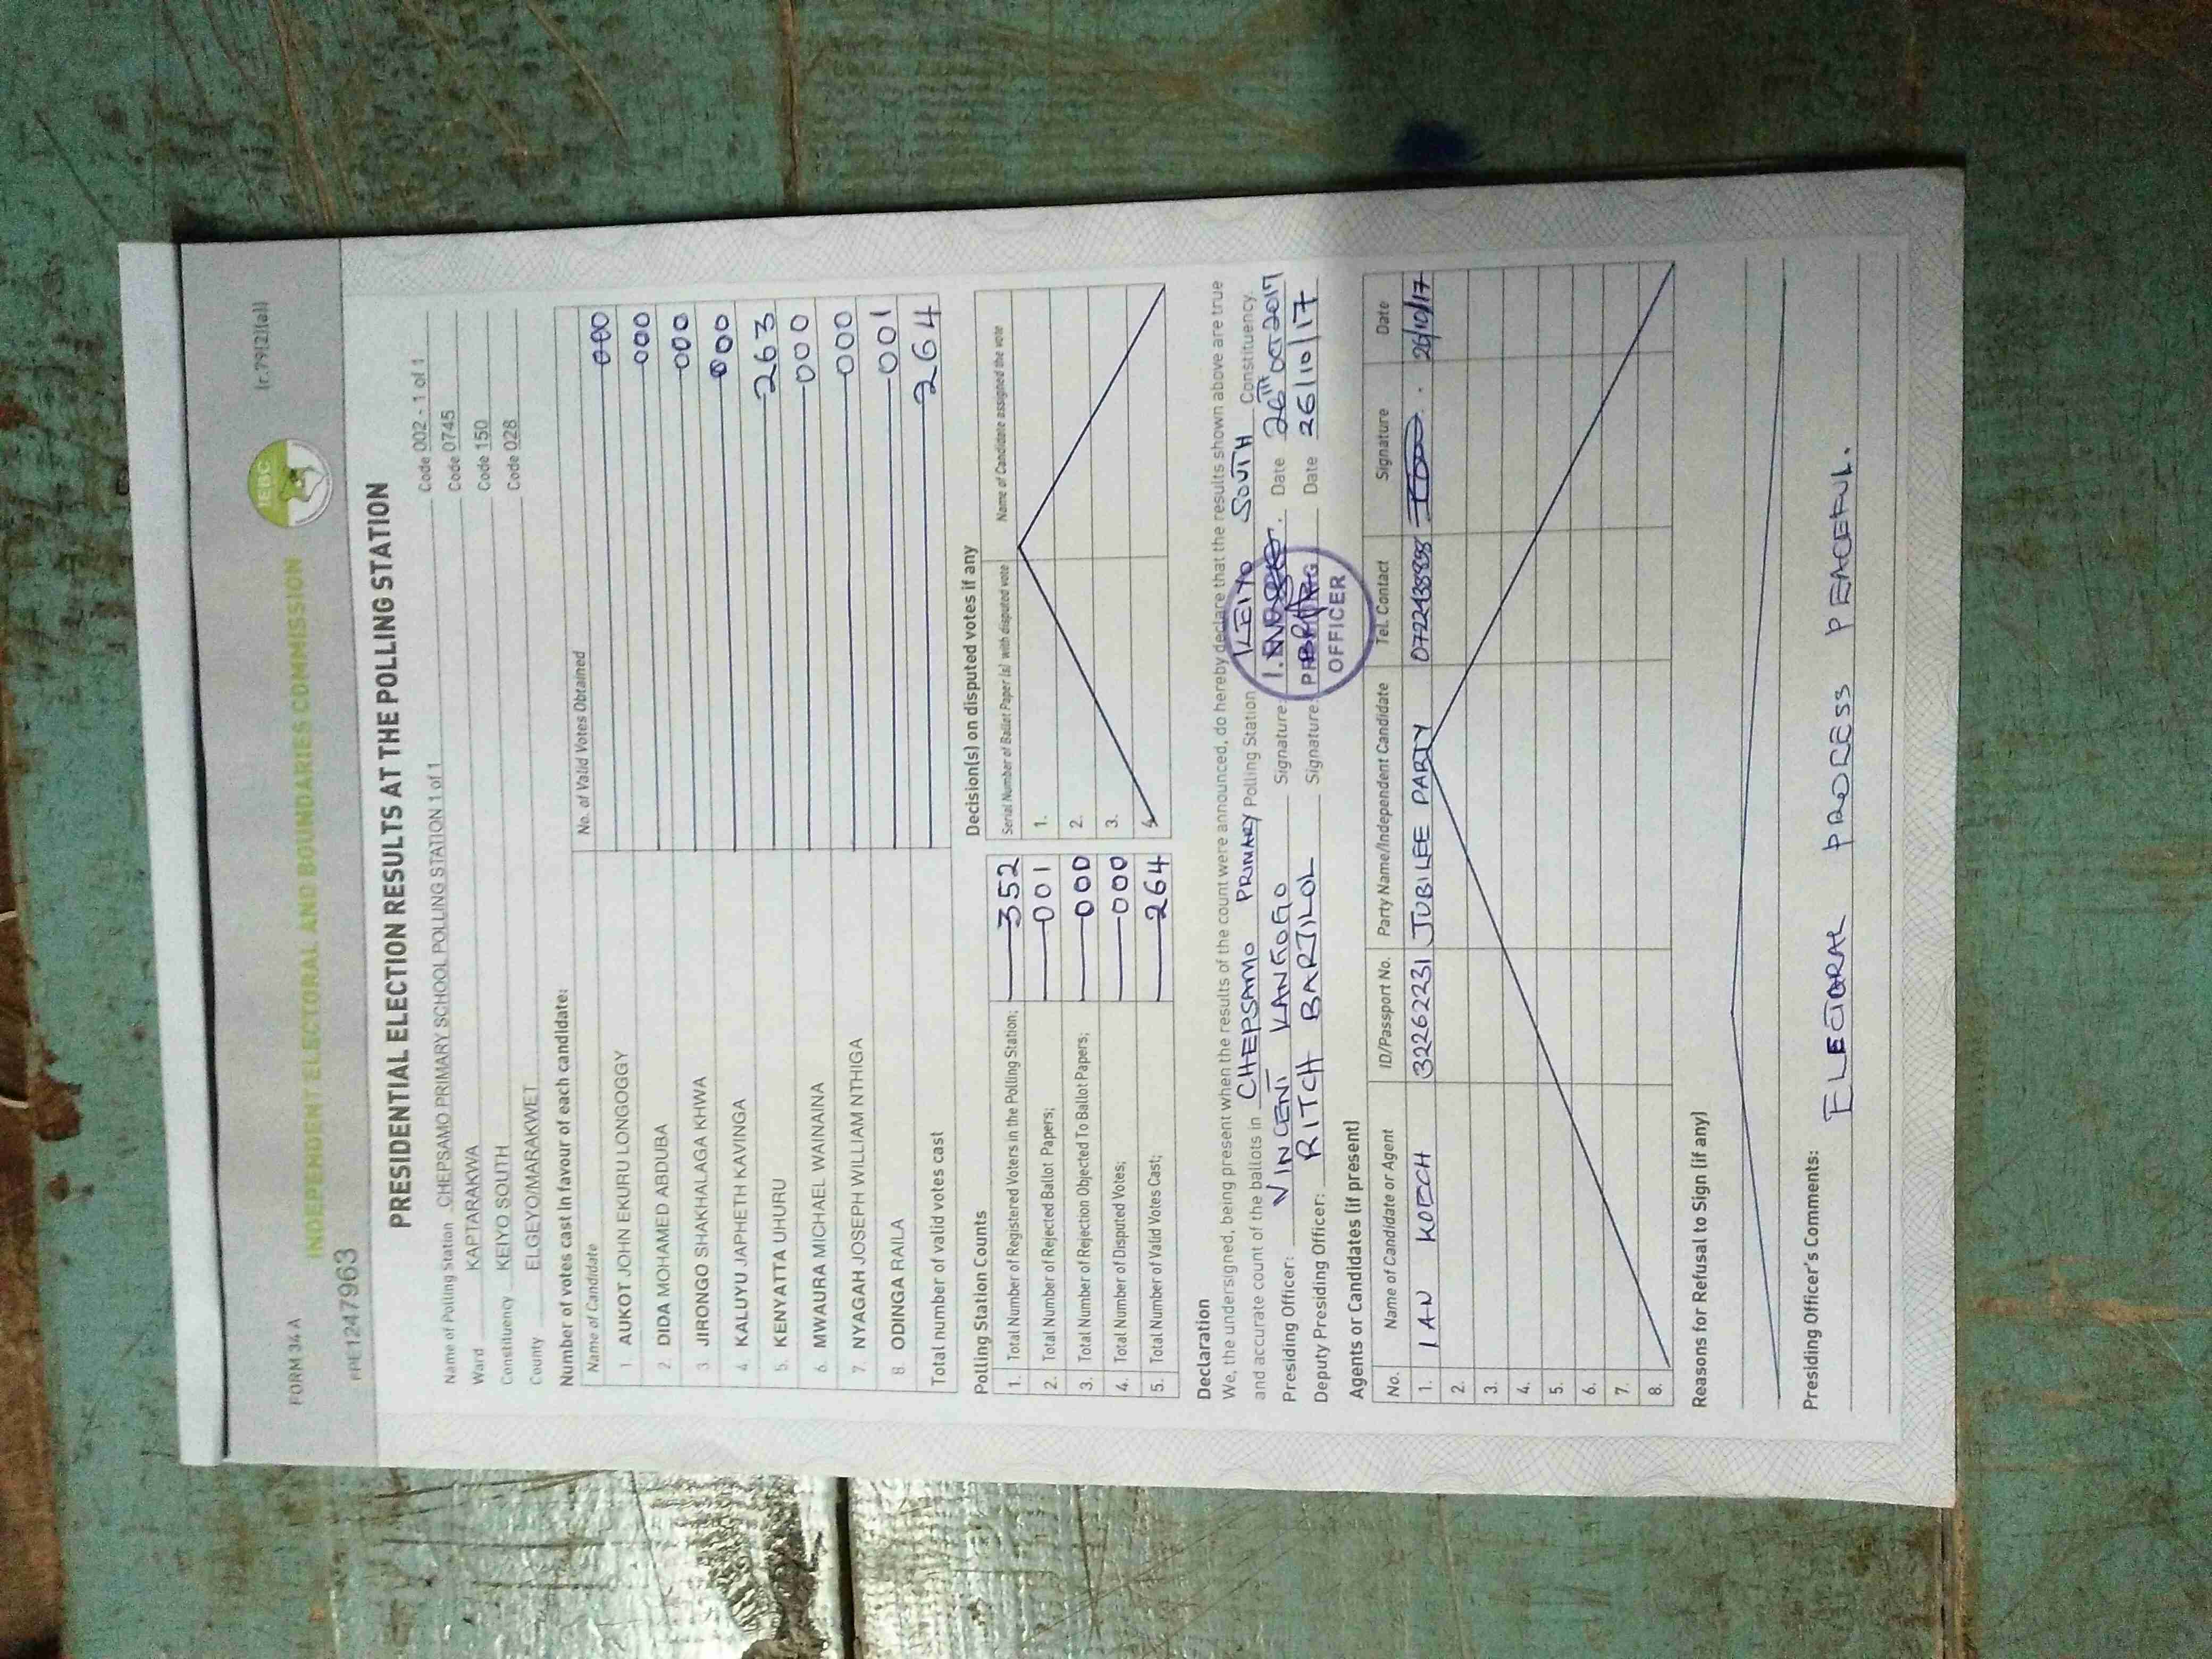 FORM 34 A
(r.79(2)(a))
IEBC
INDEPENDENT ELECTORAL AND BOUNDARIES COMMISSION
PRESIDENTIAL ELECTION RESULTS AT THE POLLING STATION
Name of Polling Station CHEPSAMO PRIMARY SCHOOL POLLING STATION 1 of 1 Code 002 - 1 of 1
Ward KAPTARAKWA Code 0745
Constituency KEIYO SOUTH Code 150
County ELGEYO/MARAKWET Code 028
Number of votes cast in favour of each candidate:
Name of Candidate No. of Valid Votes Obtained
1 AUKOT JOHN EKURU LONGOGGY 000
2 DIDA MOHAMED ABDUBA 000
3 JIRONGO SHAKHALAGA KHWA 000
4. KALUYU JAPHETH KAVINGA 000
5. KENYATTA UHURU 263
6 MWAURA MICHAEL WAINAINA 000
7. NYAGAH JOSEPH WILLIAM NTHIGA 000
8. ODINGA RAILA 001
Total number of valid votes cast 264
Polling Station Counts
1. Total Number of Registered Voters in the Polling Station; 352
2. Total Number of Rejected Ballot Papers; 001
3. Total Number of Rejection Objected To Ballot Papers; 000
4. Total Number of Disputed Votes; 000
5. Total Number of Valid Votes Cast; 264
Decision(s) on disputed votes if any
Serial Number of Ballot Paper (s) with disputed vote Name of Candidate assigned the vote
1.
2.
3.
4.
Declaration
We, the undersigned, being present when the results of the count were announced, do hereby declare that the results shown above are true
and accurate count of the ballots in CHEPSAMO PRIMARY Polling Station KEIYO SOUTH Constituency.
Presiding Officer: VINCENT KANGOGO Signature: Date 26TH OCT 2017
Deputy Presiding Officer: RITCH BARJILOL Signature: Date 26/10/17
OFFICER
Agents or Candidates (if present)
No. Name of Candidate or Agent ID/Passport No. Party Name/Independent Candidate Tel. Contact Signature Date
1. IAN KOECH 32262231 JUBILEE PARTY 26/10/17
2.
3.
4.
5.
6.
7.
8.
Reasons for Refusal to Sign (if any)
Presiding Officer's Comments:
ELECTORAL PROCESS PEACEFUL.